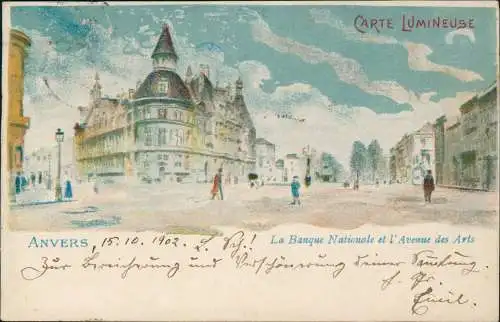 CARTE LUMINEUSE
ANVERS, 15.10.1902. L. Sch.!
La Banque Nationale et l'Avenue des Arts
Zur Bereicherung und Verschönerung Deiner Samlung
Emil